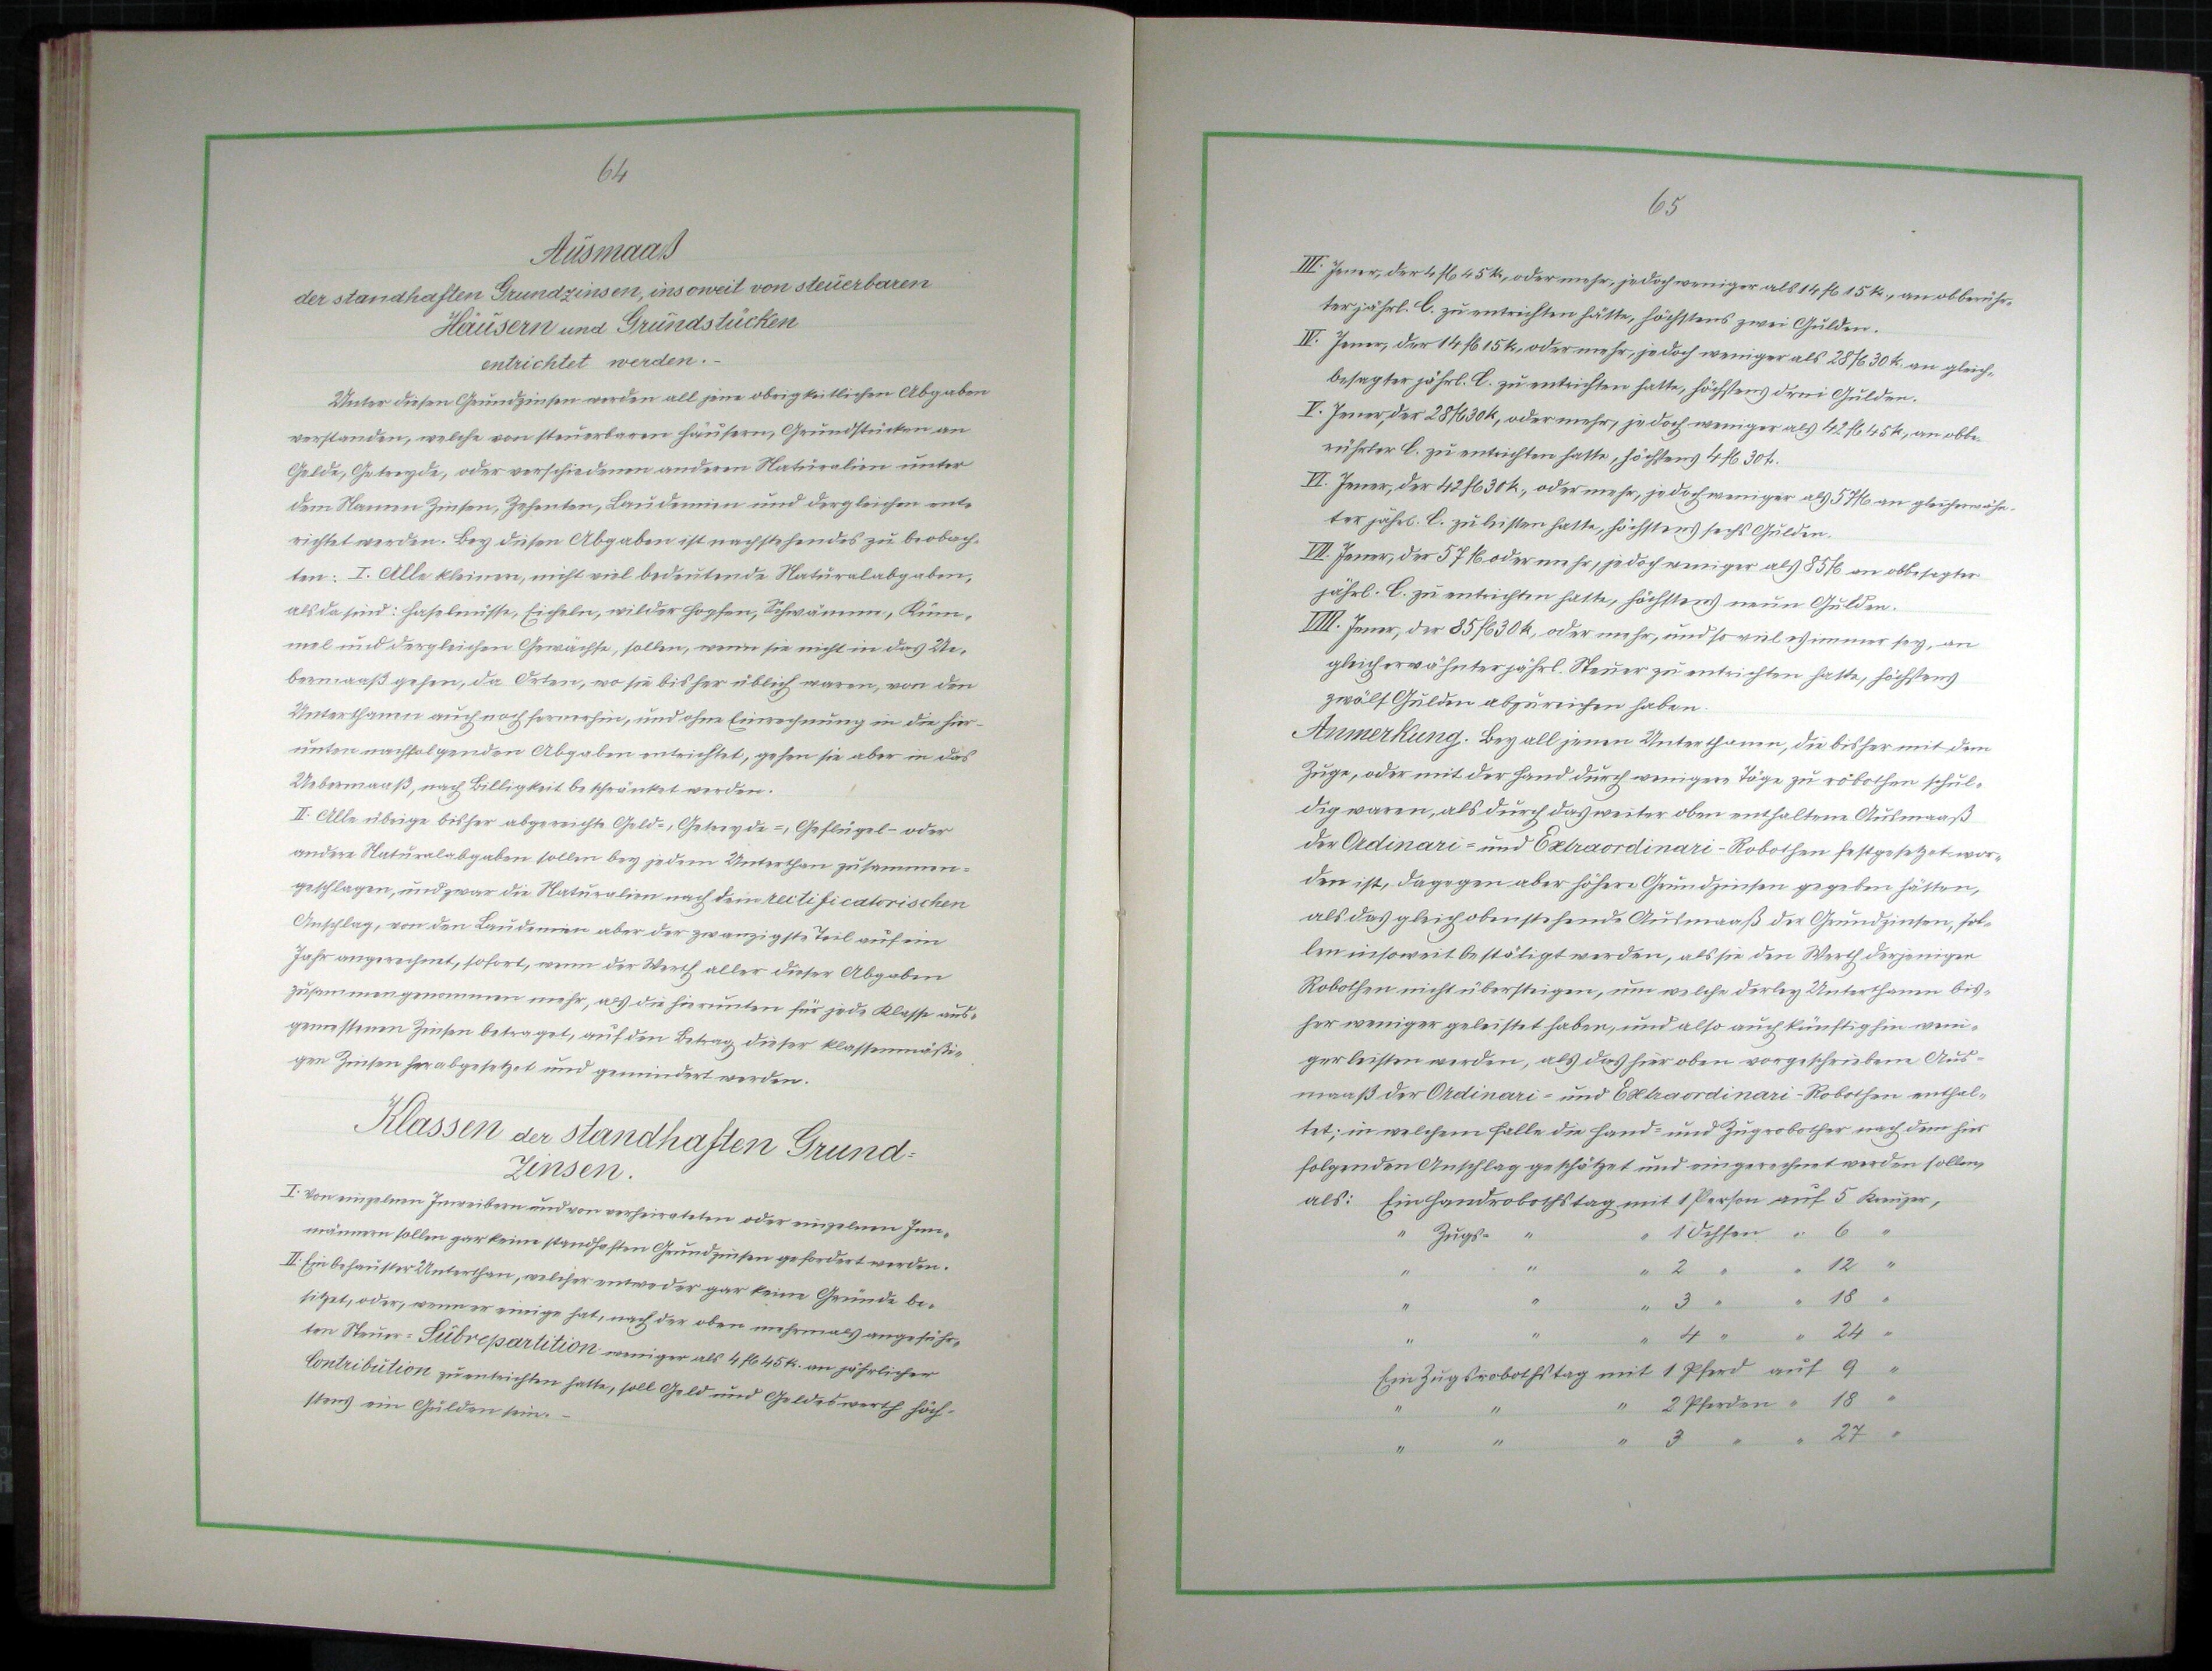 64
Ausmaaß
der standhaften Grundzinsen, insoweit von steuerbaren
Häusern und Grundstücken
entrichtet werden.-
Unter diesen Grundzinsen werden all jene obrigkeitlichen Abgaben
verstanden, welche von steuerbaren Häusern, Grundstücken an
Gelde, Getreyde, oder verschiedenen anderen Naturalien unter
dem Namen Zinsen, Zehenten, Laudemien und dergleichen ent-
richtet werden. Bey diesen Abgaben ist nachstehendes zu beobach-
ten: I. Alle kleinen, nicht viel bedeutende Naturalabgaben,
als da sind: Haselnüsse, Eicheln, wilder Hopfen, Schwämme, Küm-
mel und dergleichen Gewächse, sollen, wenn sie nicht in das Ue-
bermaaß gehen, da Orten, wo sie bisher üblich waren, von den
Unterthanen auch noch fernerhin, und ohne Einrechnung in die hier-
unten nachfolgenden Abgaben entrichtet, gehen sie aber in das
Uebermaaß, nach Billigkeit beschränket werden.
II. Alle übrige bisher abgereichte Geld-, Getreyde-, Geflügel- oder
andere Naturalabgaben sollen bey jedem Unterthan zusammen-
geschlagen, und zwar die Naturalien nach dem rectificatorischen
Anschlag, von den Laudemien aber der zwanzigste Teil auf ein
Jahr angerechnet, sofort, wenn der Werth aller dieser Abgaben
zusammengenommen mehr, als die hierunten für jede Klasse aus-
gemessenen Zinsen betraget, auf den Betrag dieser klassenmäßi-
gen Zinsen herabgesetzet und gemindert werden.
Klassen der standhaften Grund-
Zinsen.
I. Von einzelnen Inweibern und von verheirateten oder einzelnen Inn-
männern sollen gar keine standhaften Grundzinsen gefordert werden.
II. Ein behauster Unterthan, welcher entweder gar keine Gründe be-
sitzet, oder, wenn er einige hat, nach der oben mehrmals angeführ-
ten Steuer-Subrepartition weniger als 4 fl 45 k. an jährlicher
Contribution zu entrichten hatte, soll Geld und Geldeswerth höch-
stens ein Gulden sein.-
65
III. Jener, der 4 fl 45 k, oder mehr, jedoch weniger als 14 fl 15 k., an obberühr-
ter jährl. C. zu entrichten hätte, höchstens zwei Gulden.
IV. Jener, der 14 fl 15 k, oder mehr, jedoch weniger als 28 fl 30 k. an gleich-
besagter jährl. C. zu entrichten hatte, höchstens drei Gulden.
V. Jener, der 28 fl 30 k, oder mehr, jedoch weniger als 42 fl 45 k, an obbe-
rührter C. zu entrichten hatte, höchstens 4 fl 30 k.
VI. Jener, der 42 fl 30 k, oder mehr, jedoch weniger als 57 fl an gleicherwähn-
ter jährl. C. zu leisten hatte, höchstens sechs Gulden.
VII. Jener, der 57 fl oder mehr, jedoch weniger als 85 fl an obbesagter
jährl. C. zu entrichten hatte, höchstens neun Gulden.
VIII. Jener, der 85 fl 30 k, oder mehr, und so viel es immer sey, an
gleich erwähnter jährl. Steuer zu entrichten hatte, höchstens
zwölf Gulden abzureichen haben.
Anmerkung. Bey all jenen Unterthanen, die bisher mit dem
Zuge, oder mit der Hand durch wenigere Täge zu robothen schul-
dig waren, als durch das weiter oben enthaltene Ausmaaß
der Ordinari- und Extraordinari-Robothen festgesetzet wor-
den ist, dagegen aber höhere Grundzinsen gegeben hätten,
als das gleich obenstehende Ausmaaß der Grundzinsen, sol-
len insoweit bestätigt werden, als sie den Werth derjenigen
Robothen nicht übersteigen, um welche derley Unterthanen bis-
her weniger geleistet haben, und also auch künftighin weni-
ger leisten werden, als das hier oben vorgeschriebene Aus-
maaß der Ordinari- und Extraordinari-Robothen enthal-
tet; in welchem Falle die Hand- und Zugrobothen nach dem hier
folgenden Anschlag geschätzet und eingerechnet werden sollen,
als: Ein Handrobothstag mit 1 Person auf 5 Kreuzer,
" Zugs- " " 1 Ochsen " 6 "
" " " 2 " " 12 "
" " " 3 " " 18 "
" " " 4 " " 24 "
Ein Zugsrobothstag mit 1 Pferd auf 9 "
" " " 2 Pferden " 18 "
" " " 3 " " 27 "